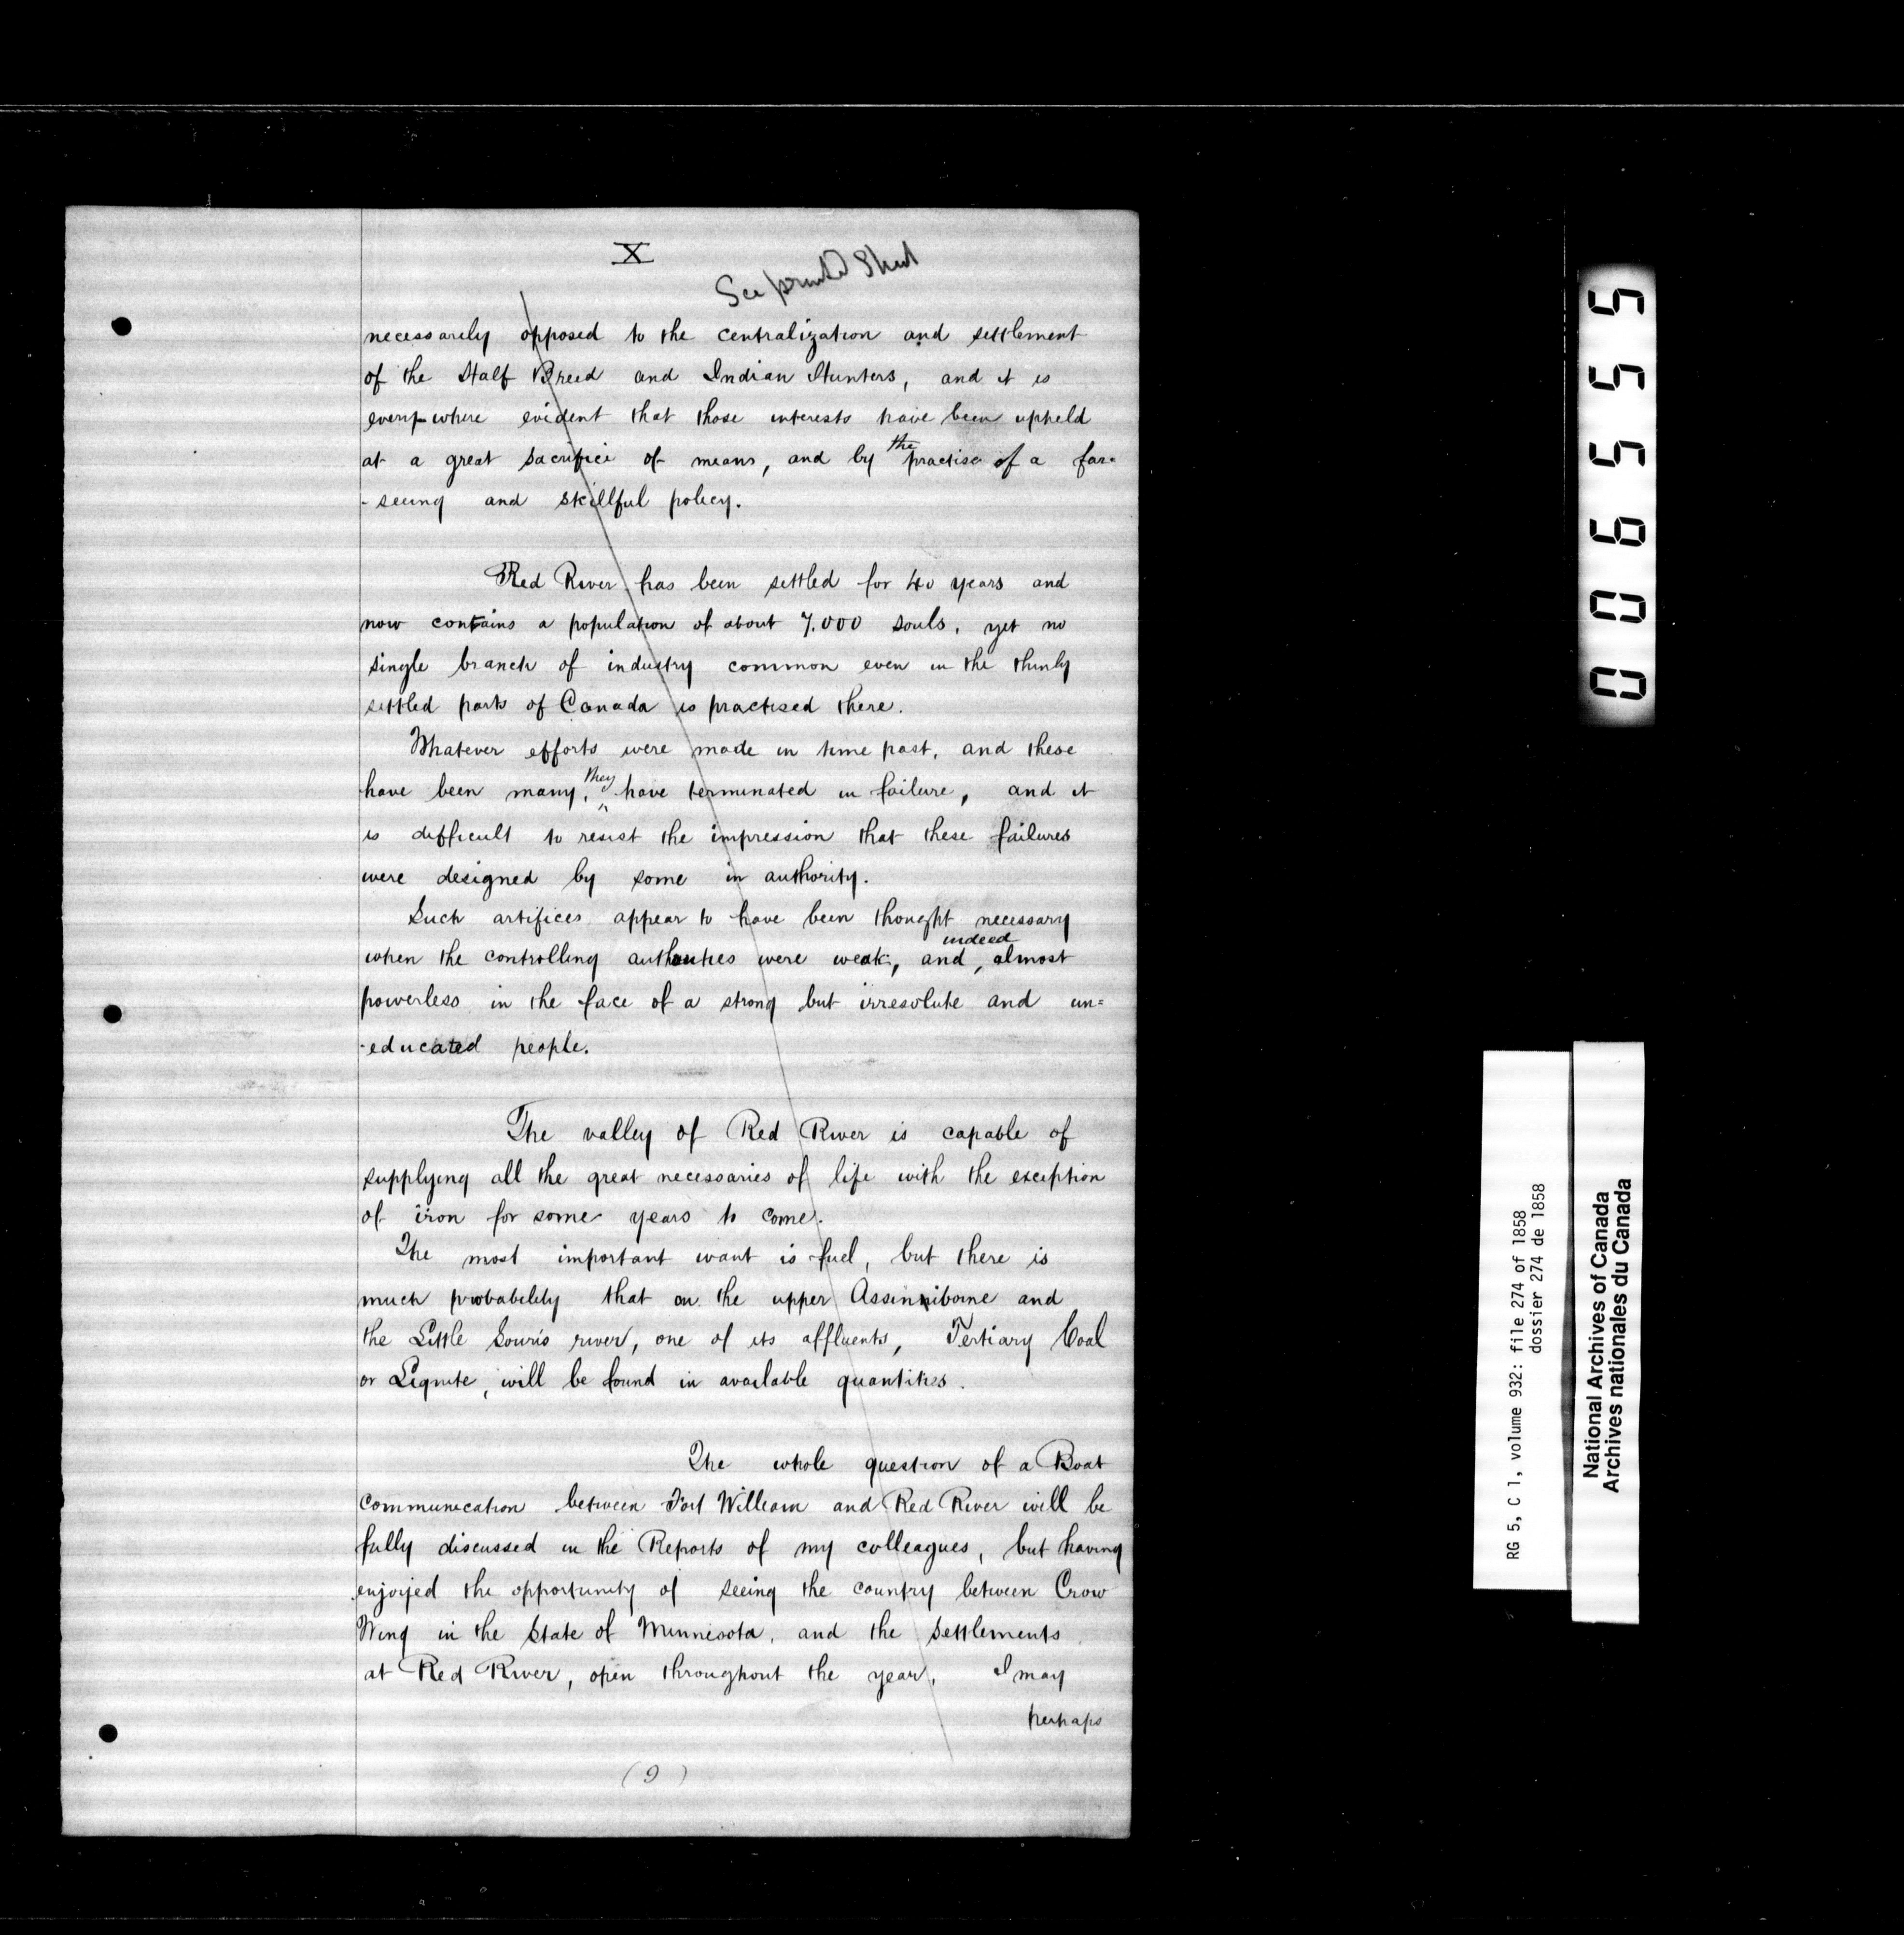 X
See printed Sheet
necessarily opposed to the centralization and settlement
of the Half Breed and Indian Hunters, and it is
every-where evident that those interests have been upheld
at a great sacrifice of means, and by the practise of a far-
-seeing and skillful policy.
Red River has been settled for 40 years and
now contains a population of about 7.000 souls, yet no
single branch of industry common even in the thinly
settled parts of Canada is practised there.
Whatever efforts were made in time past, and these
have been many, they have terminated in failure, and it
is difficult to resist the impression that these failures
were designed by some in authority.
Such artifices appear to have been thought necessary
when the controlling authorities were weak, and, indeed almost
powerless in the face of a strong but irresolute and un=
-educated people.
The valley of Red River is capable of
supplying all the great necessaries of life with the exception
of iron for some years to come.
The most important want is fuel, but there is
much probability that on the upper Assinniboine and
the Little Souris river, one of its affluents, Tertiary Coal
or Lignite, will be found in available quantities.
The whole question of a Boat
communication between Fort William and Red River will be
fully discussed in the Reports of my colleagues, but having
enjoyed the opportunity of seeing the country between Crow
Wing in the State of Minnesota, and the Settlements
at Red River, open throughout the year, I may
perhaps
(9)
006555
RG 5, C 1, volume 932: file 274 of 1858
dossier 274 de 1858
National Archives of Canada
Archives nationales du Canada